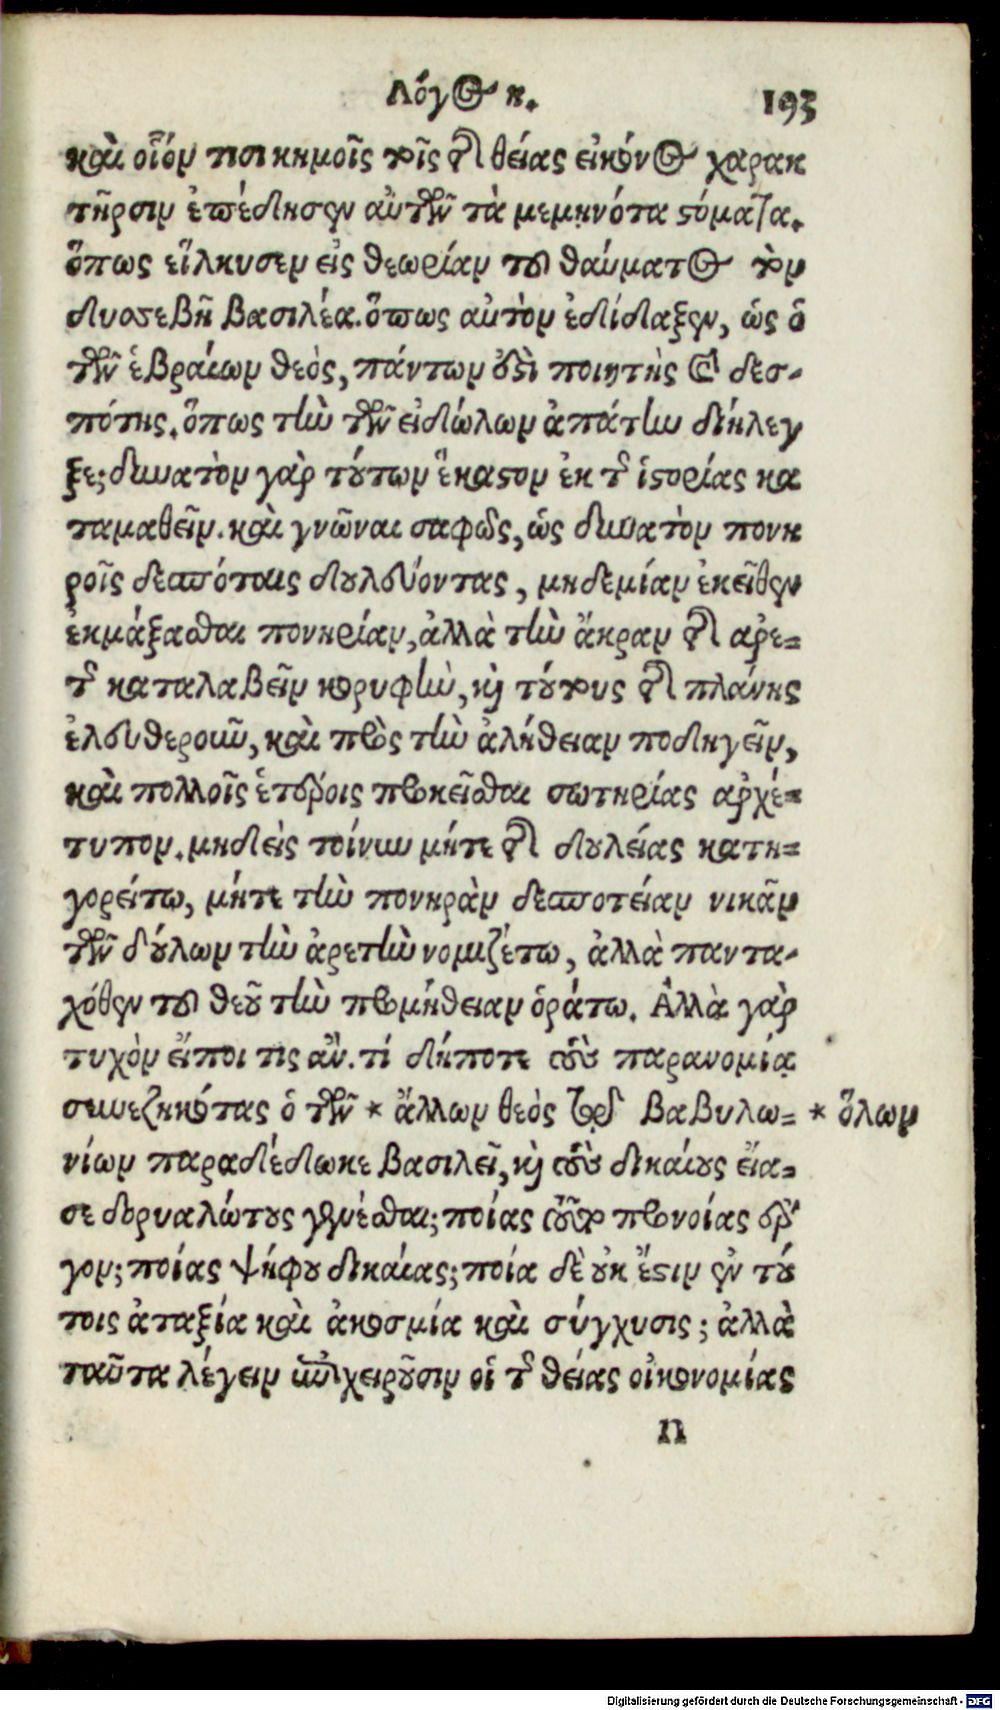 Λόγος κ. 193
καὶ οἷόν τισι κημοῖς τοῖς τῆς θείας εἰκόνος χαρακ
τῆρσιν ἐπέδησεν αὐτῶν τὰ μεμηνότα στόματα.
ὅπως εἵλκυσεν εἰς θεωρίαν τοῦ θαύματος τὸν
δυσσεβῆ βασιλέα. ὅπως αὐτὸν ἐδίδαξεν, ὡς ὁ
τῶν ἑβραίων θεὸς, πάντων ἐστὶ ποιητὴς καὶ δεσ-
πότης. ὅπως τὴν τῶν εἰδώλων ἀπάτην διήλεγ
ξε; δυνατὸν γὰρ τούτων ἕκαστον ἐκ τῆς ἱστορίας κα
ταμαθεῖν. καὶ γνῶναι σαφῶς, ὡς δυνατὸν πονη
ροῖς δεσπόταις δουλεύοντας, μηδεμίαν ἐκεῖθεν
ἐκμάξασθαι πονηρίαν, ἀλλὰ τὴν ἄκραν τῆς ἀρε-
τῆς καταλαβεῖν κορυφὴν, καὶ τούτους τῆς πλάνης
ἐλευθεροῦν, καὶ πρὸς τὴν ἀλήθειαν ποδηγεῖν,
καὶ πολλοῖς ἑτέροις προκεῖσθαι σωτηρίας ἀρχέ-
τυπον. μηδεὶς τοίνυν μήτε τῆς δουλείας κατη-
γορείτω, μήτε τὴν πονηρὰν δεσποτείαν νικᾶν
τῶν δούλων τὴν ἀρετὴν νομιζέτω, ἀλλὰ παντα-
χόθεν τοῦ θεοῦ τὴν προμήθειαν ὁράτω. Ἀλλὰ γὰρ
τυχὸν εἴποι τις ἄν. τί δήποτε τοὺς παρανομίᾳ
συνεζηκότας ὁ τῶν * ἄλλων θεὸς τῷ Βαβυλω- * ὅλων
νίων παραδέδωκε βασιλεῖ, καὶ τοὺς δικαίους εἴα-
σε δορυαλώτους γενέσθαι; ποίας τοῦτο προνοίας ἔρ
γον; ποίας ψήφου δικαίας; ποία δὲ οὐκ ἔστιν ἐν τού
τοις ἀταξία καὶ ἀκοσμία καὶ σύγχυσις; ἀλλὰ
ταῦτα λέγειν ἐπιχειροῦσιν οἱ τῆς θείας οἰκονομίας
n
Digitalisierung gefördert durch die Deutsche Forschungsgemeinschaft - DFG